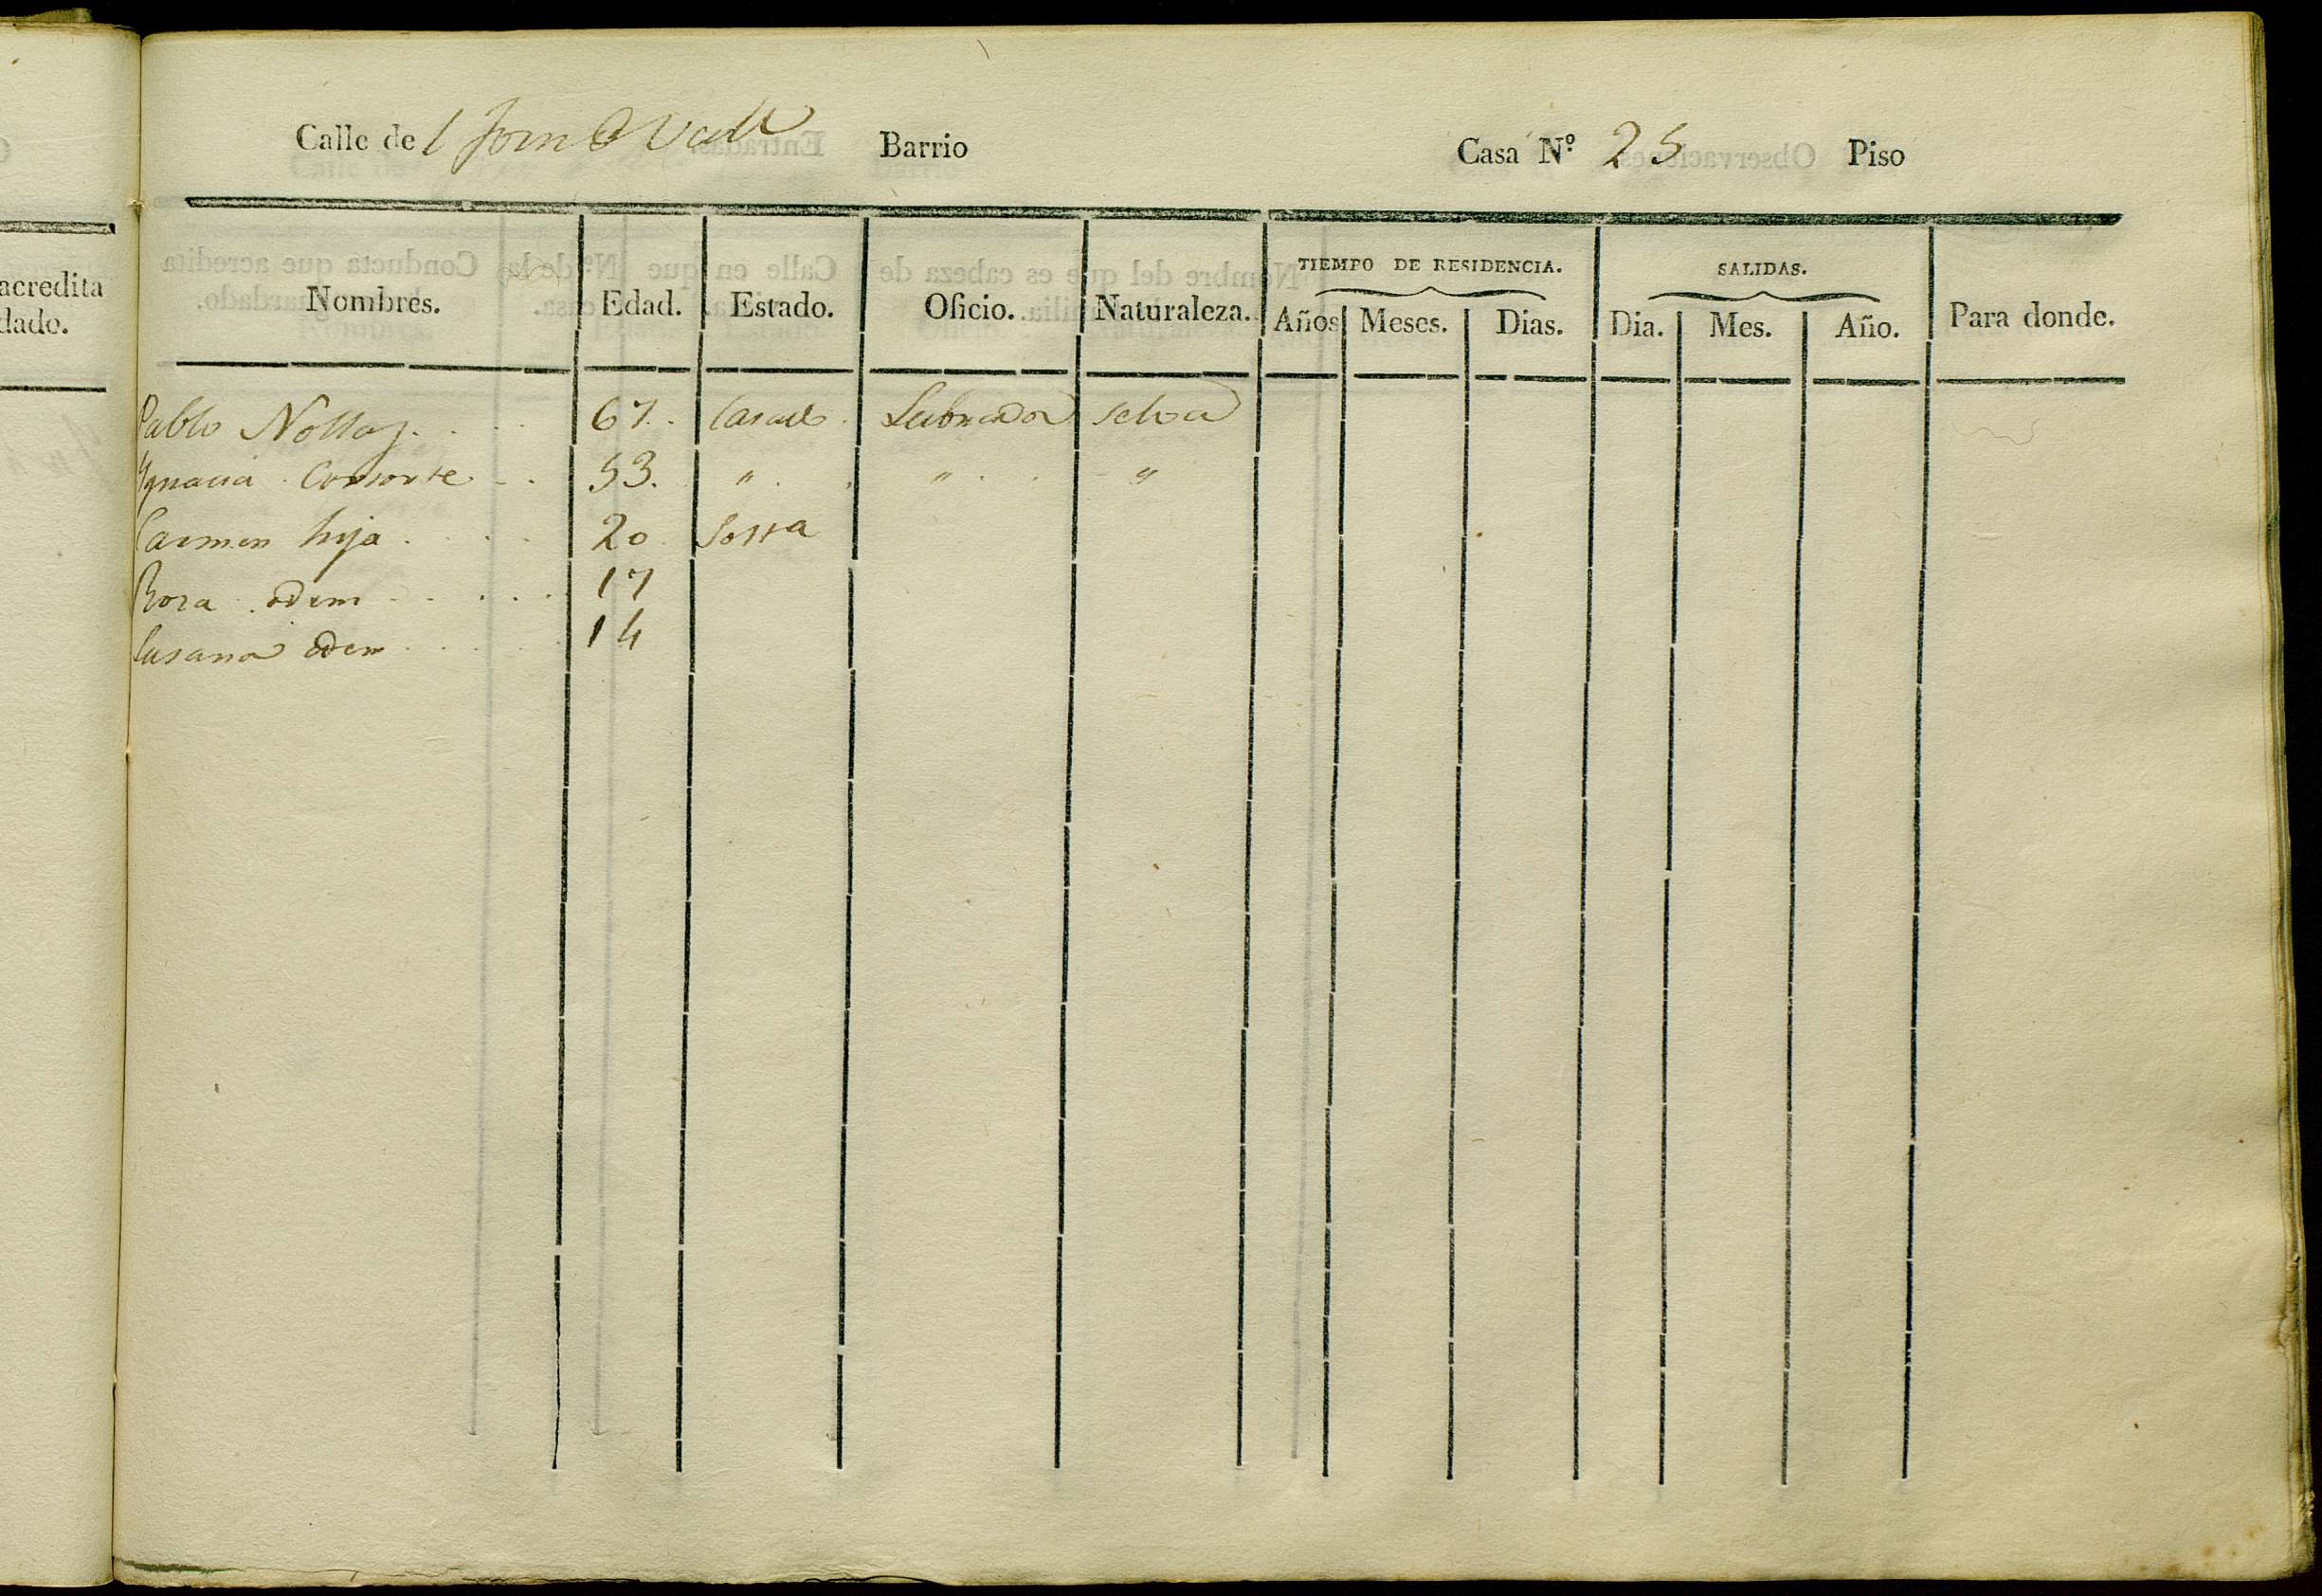 Calle de l Forn d Vall Barrio Casa Nº 25 Piso
TIEMPO DE RESIDENCIA. SALIDAS.
Nombres. Edad. Estado. Oficio. Naturaleza. Años Meses. Dias. Dia. Mes. Año. Para donde.
Pablo 67. Casado. Labrador Selva
Ygnacia Consorte 53. " " "
Carmen hija 20 Solta
Rosa idem 17
Susana idem 14
acredita
dado.